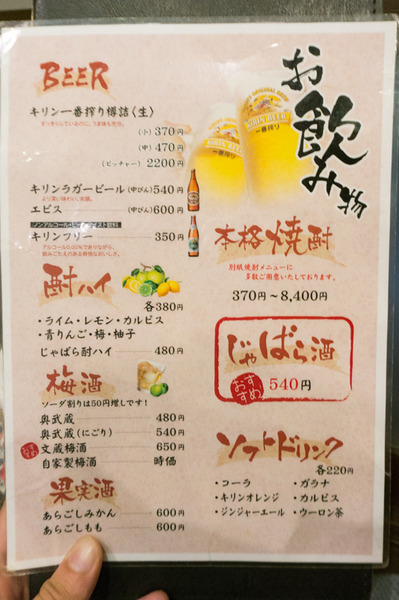 お飲み物
BEER
キリン一番搾り樽詰〈生〉
すっきりしているのに、うま味も充分。
(小) 370円
(中) 470円
(ピッチャー) 2200円
KIRIN BEER
一番搾り
KIRIN BEER
一番搾り
キリンラガービール (中びん) 540円
より深い味わいに実感。
エビス (中びん) 600円
ノンアルコール・ビールテイスト飲料
キリンフリー 350円
アルコール0.00%でありながら、
飲みごたえのある爽快なおいしさ。
酎ハイ
各380円
・ライム・レモン・カルピス
・青りんご・梅・柚子
じゃばら酎ハイ 480円
梅酒
ソーダ割りは50円増しです!
奥武蔵 480円
奥武蔵(にごり) 540円
おすすめ
文蔵梅酒 650円
自家製梅酒 時価
果実酒
あらごしみかん 600円
あらごしもも 600円
本格焼酎
別紙焼酎メニューに
多数ご用意いたしております。
370円～8,400円
じゃばら酒
おすすめ
540円
ソフトドリンク
各220円
・コーラ ・ガラナ
・キリンオレンジ ・カルピス
・ジンジャーエール ・ウーロン茶